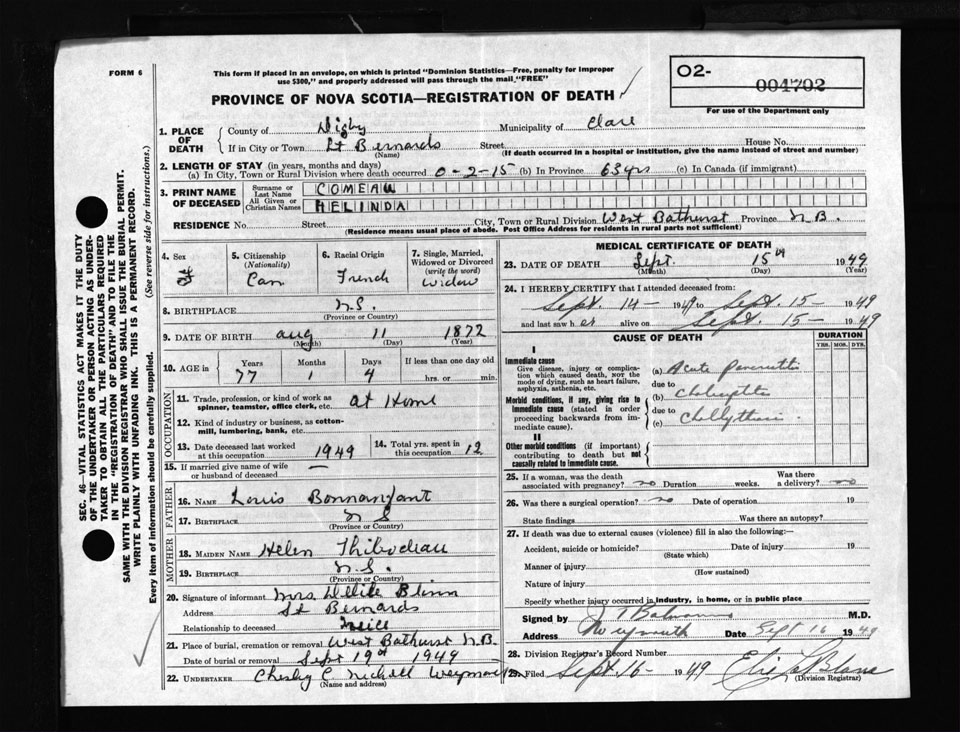 FORM 6
This form if placed in an envelope, on which is printed "Dominion Statistics—Free, penalty for improper
use $300," and properly addressed will pass through the mail "FREE"
O2-
004702
For use of the Department only
PROVINCE OF NOVA SCOTIA—REGISTRATION OF DEATH
1. PLACE OF DEATH County of Digby Municipality of Clare
If in City or Town St Bernards Street House No.
(Name) (If death occurred in a hospital or institution, give the name instead of street and number)
2. LENGTH OF STAY (in years, months and days)
(a) In City, Town or Rural Division where death occurred 0-2-15 (b) In Province 63 yrs (c) In Canada (if immigrant)
3. PRINT NAME OF DECEASED Surname or Last Name COMEAU
All Given or Christian Names MELINDA
RESIDENCE No. Street City, Town or Rural Division West Bathurst Province N.B.
(Residence means usual place of abode. Post Office Address for residents in rural parts not sufficient)
4. Sex F
5. Citizenship (Nationality) Can
6. Racial Origin French
7. Single, Married, Widowed or Divorced (write the word) Widow
8. BIRTHPLACE N.S.
(Province or Country)
9. DATE OF BIRTH Aug 11 1872
(Month) (Day) (Year)
10. AGE in Years 77 Months 1 Days 4 If less than one day old hrs. or min.
OCCUPATION
11. Trade, profession, or kind of work as spinner, teamster, office clerk, etc. at Home
12. Kind of industry or business, as cotton-mill, lumbering, bank, etc.
13. Date deceased last worked at this occupation 1949
14. Total yrs. spent in this occupation 12
15. If married give name of wife or husband of deceased —
FATHER
16. NAME Louis
17. BIRTHPLACE N S
(Province or Country)
MOTHER
18. MAIDEN NAME Helen Thibodeau
19. BIRTHPLACE N.S.
(Province or Country)
20. Signature of informant Mrs Blinn
Address St Bernards
Relationship to deceased Neice
21. Place of burial, cremation or removal West Bathurst N.B.
Date of burial or removal Sept 19th 1949
22. UNDERTAKER Chesley C Weymouth
(Name and address)
MEDICAL CERTIFICATE OF DEATH
23. DATE OF DEATH Sept. 15th 1949
(Month) (Day) (Year)
24. I HEREBY CERTIFY that I attended deceased from:
Sept. 14 - 1949 to Sept. 15 - 1949
and last saw her alive on Sept. 15 - 1949
CAUSE OF DEATH
DURATION
YRS. MOS. DYS.
I
Immediate cause
Give disease, injury or complication which caused death, NOT the mode of dying, such as heart failure, asphyxia, asthenia, etc.
(a) Acute
due to
Morbid conditions, if any, giving rise to immediate cause (stated in order proceeding backwards from immediate cause).
(b)
due to
(c)
II
Other morbid conditions (if important) contributing to death but not causally related to immediate cause.
25. If a woman, was the death associated with pregnancy? no Duration weeks. Was there a delivery? no
26. Was there a surgical operation? no Date of operation 19
State findings Was there an autopsy?
27. If death was due to external causes (violence) fill in also the following:—
Accident, suicide or homicide? Date of injury 19
(State which)
Manner of injury
(How sustained)
Nature of injury
Specify whether injury occurred in industry, in home, or in public place
Signed by M.D.
Address Weymouth Date Sept 16 1949
28. Division Registrar's Record Number
29. Filed Sept. 16 - 1949
(Division Registrar)
SEC. 46—VITAL STATISTICS ACT MAKES IT THE DUTY
OF THE UNDERTAKER OR PERSON ACTING AS UNDER-
TAKER TO OBTAIN ALL THE PARTICULARS REQUIRED
IN THE "REGISTRATION OF DEATH" AND TO FILE THE
SAME WITH THE DIVISION REGISTRAR WHO SHALL ISSUE THE BURIAL PERMIT.
WRITE PLAINLY WITH UNFADING INK. THIS IS A PERMANENT RECORD.
Every item of information should be carefully supplied. (See reverse side for instructions.)